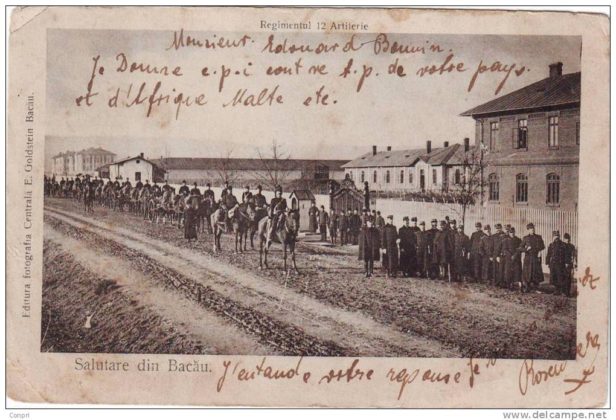 Regimentul 12 Artilerie
Monsieur. Edouard Bonnin
Je Donne c.p.i cont ve t.p. de votre pays.
et d'Afrique Malte etc.
Editura fotografia Centrală E. Goldstein Bacău.
Salutare din Bacău.
J'entand votre reponse Je
Conpri
www.delcampe.net